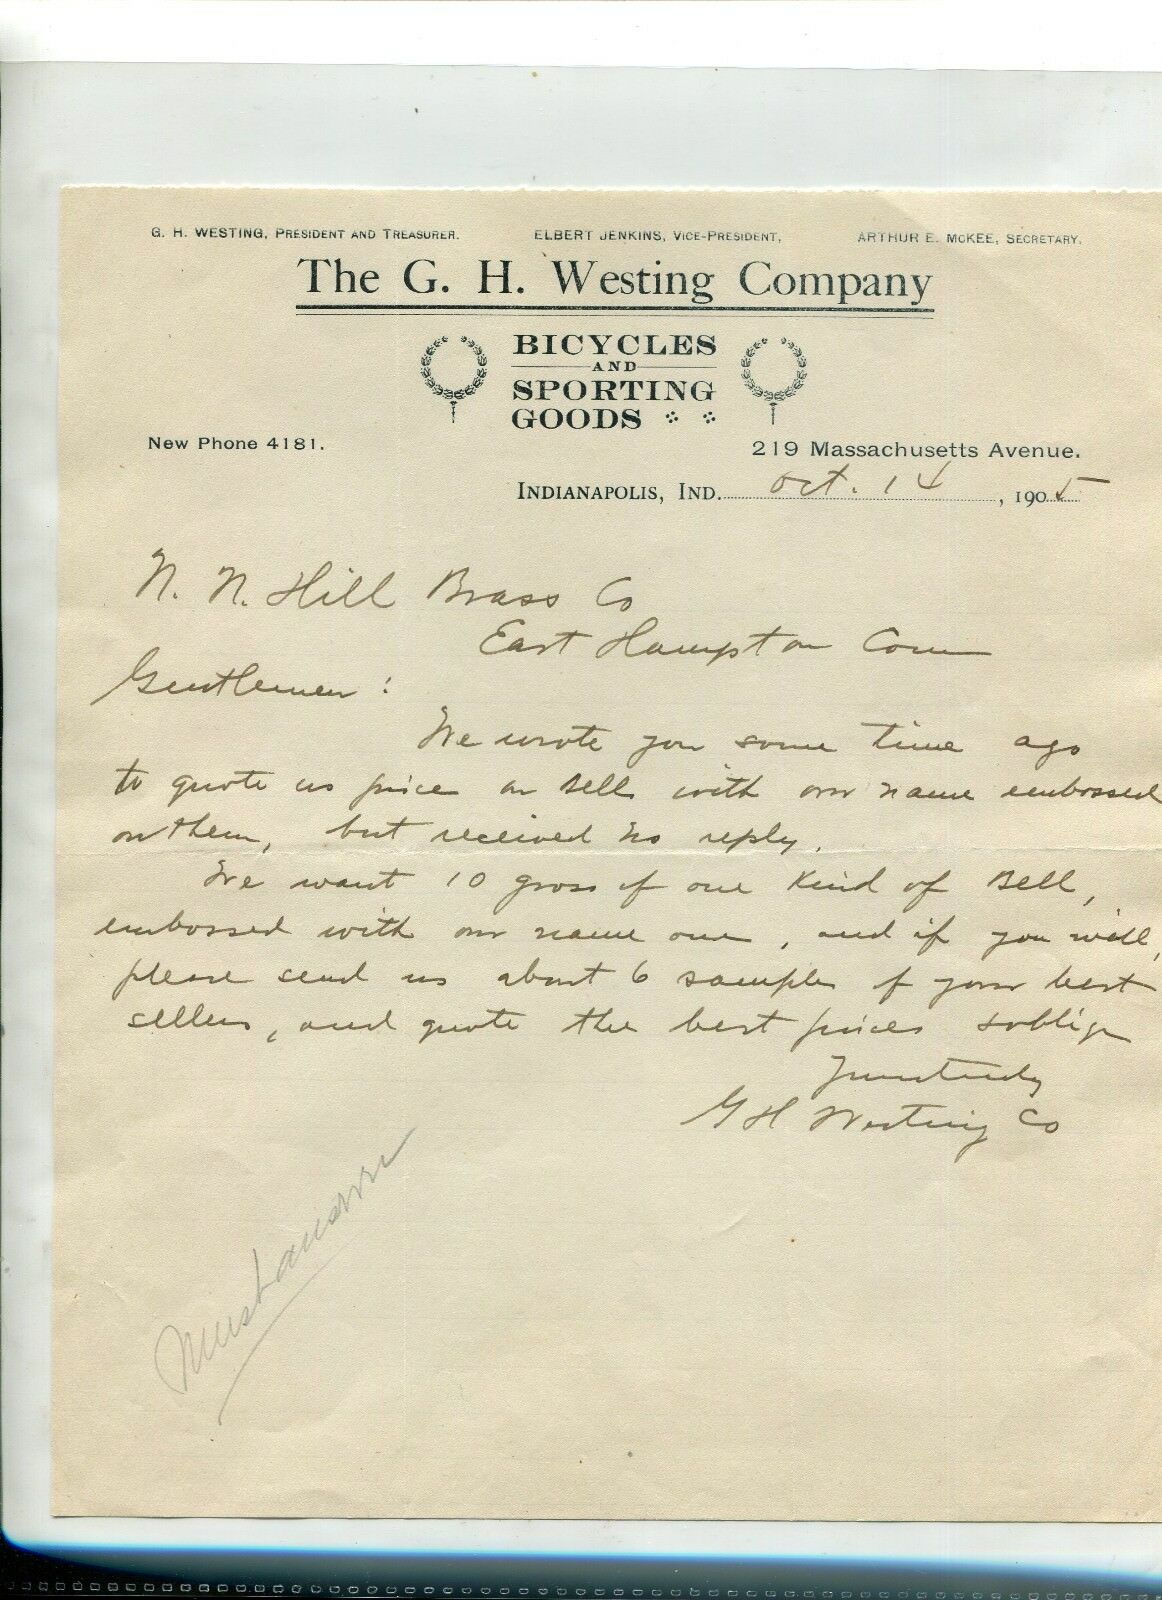 G. H. WESTING, PRESIDENT AND TREASURER. ELBERT JENKINS, VICE-PRESIDENT, ARTHUR E. McKEE, SECRETARY.
The G. H. Westing Company
BICYCLES
AND
SPORTING
GOODS
New Phone 4181. 219 Massachusetts Avenue.
INDIANAPOLIS, IND. Oct. 14, 1905
N. N. Hill Brass Co
East Hampton Conn
Gentlemen:
We wrote you some time ago
to quote us price on Bell with our name embossed
on them, but received no reply.
We want 10 gross of one kind of Bell,
embossed with our name one, and if you will,
please send us about 6 samples of your best
sellers, and quote the best prices & oblige
Yours truly
G H Westing Co